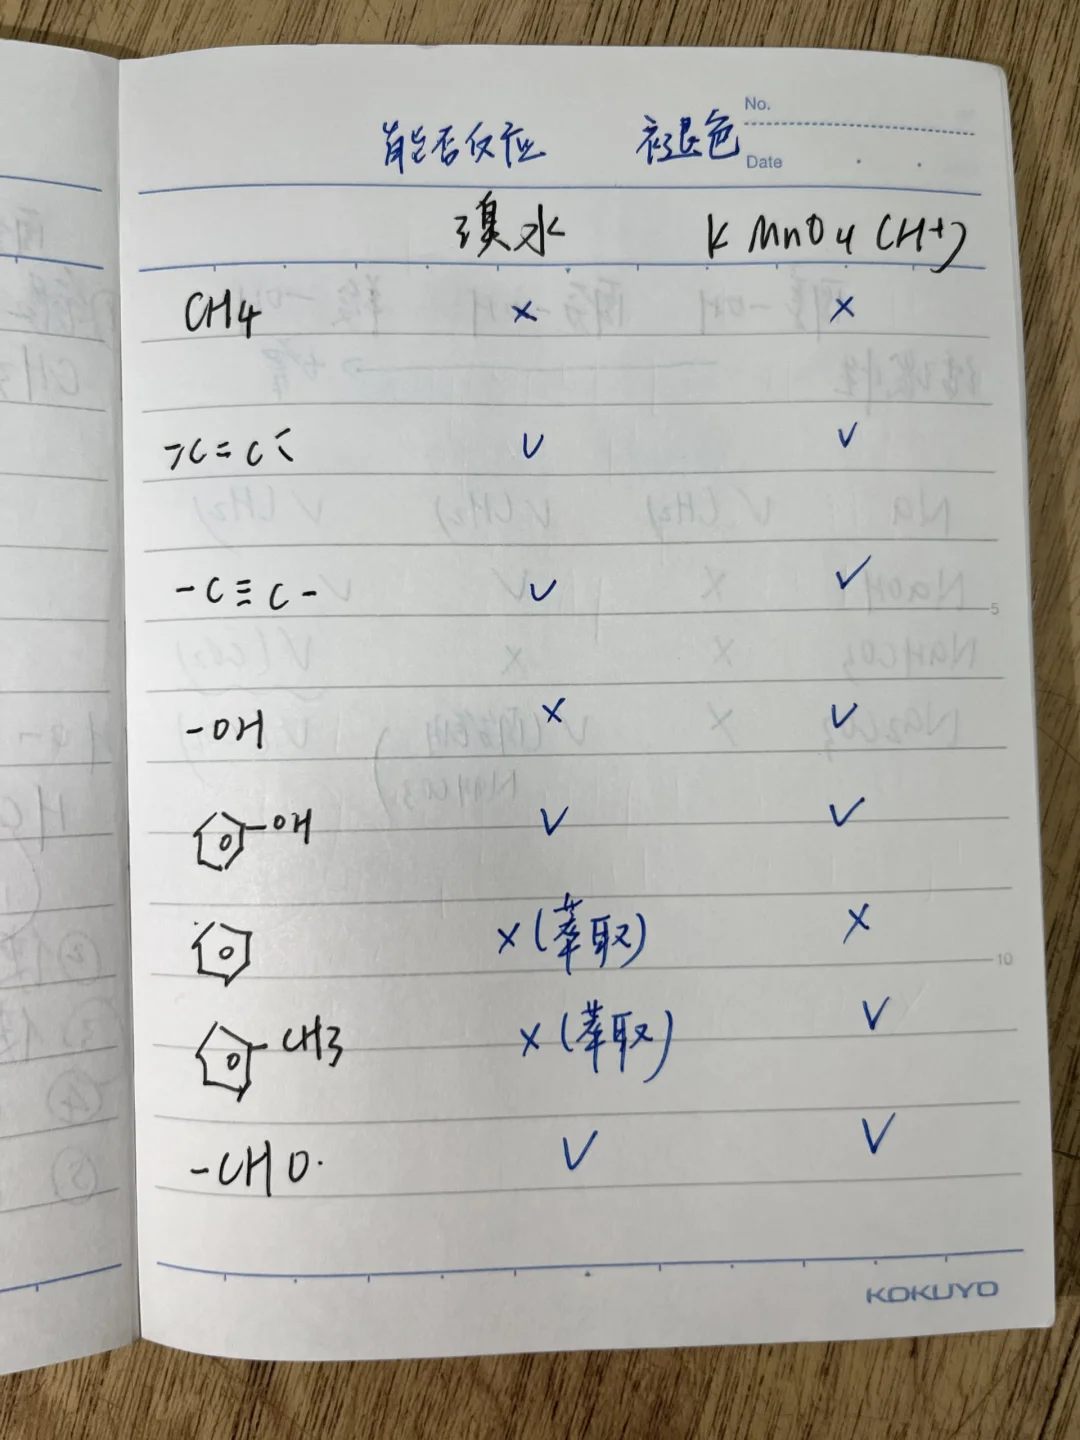 No.
能否反应 褪色
Date
溴水 KMnO4(H+)
CH4 × ×
>C=C< ✓ ✓
-C≡C- ✓ ✓
5
-OH × ✓
-OH ✓ ✓
×(萃取) ×
10
-CH3 ×(萃取) ✓
-CHO. ✓ ✓
KOKUYO